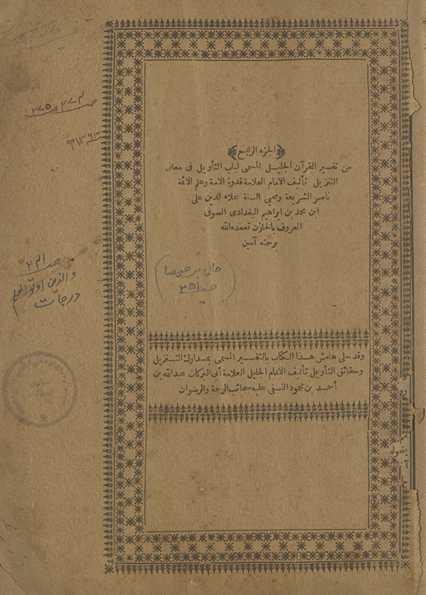 ﴿الجزء الرابع﴾
من تفسير القرآن الجليل المسمى لباب التأويل فى معانى
التنزيل تأليف الامام العلامة قدوة الامة وعلم الائمة
ناصر الشريعة ومحيى السنة علاء الدين على
ابن محمد بن ابراهيم البغدادى الصوفى
المعروف بالخازن تغمده الله
برحمته آمين
وقد حلى هامش هذا الكتاب بالتفسير المسمى بمدارك التنزيل
وحقائق التأويل تأليف الامام الجليل العلامة أبى البركات عبد الله بن
أحمد بن محمود النسفى عليه سحائب الرحمة والرضوان
والذين اوتوا العلم
درجات